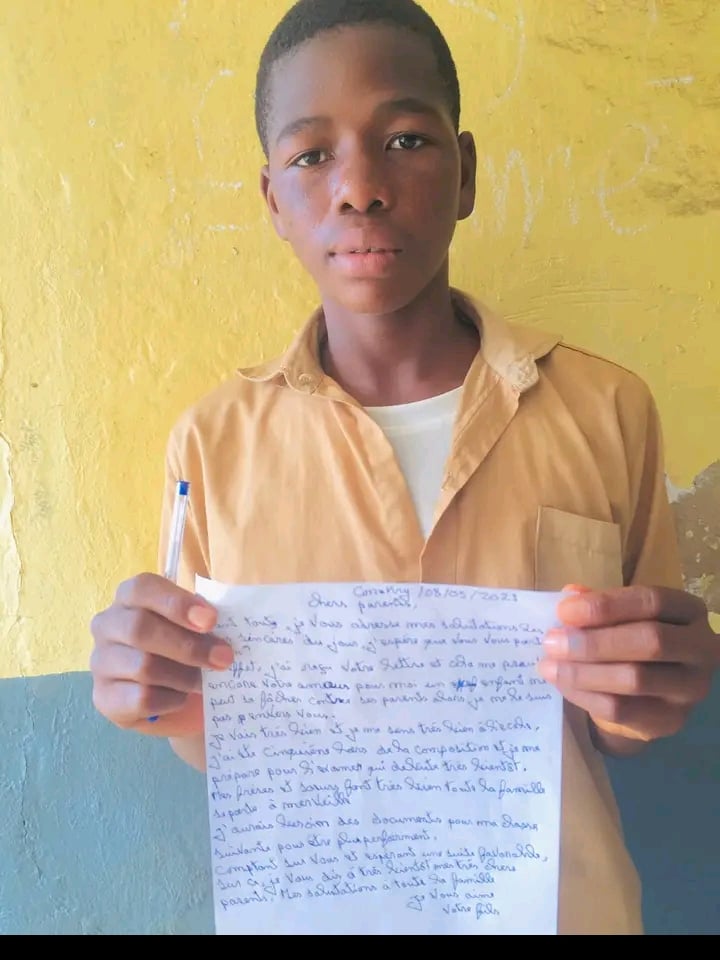 Conakry / 08/05/2023
Chers parents,
tout, je vous adresse mes salutations les
sincères du jour, j'espère que vous vous port
j'ai reçu votre lettre et cela me prouve
encore votre amour pour moi un enfant ne
peut se fâcher contre ses parents alors je ne le suis
pas envers vous.
Je vais très bien et je me sens très bien à l'école.
J'ai été cinquième lors de la composition et je me
prépare pour l'examen qui débute très bientôt.
Mes frères et sœurs font très bien toute la famille
se porte à merveille
J'aurais besoin des documents pour ma classe
suivante pour être plus performent.
Comptant sur vous et espérant une suite favorable,
sur ce, je vous dis à très bientôt mes très chers
parents. Mes salutations à toute la famille
Je vous aime
Votre fils
me